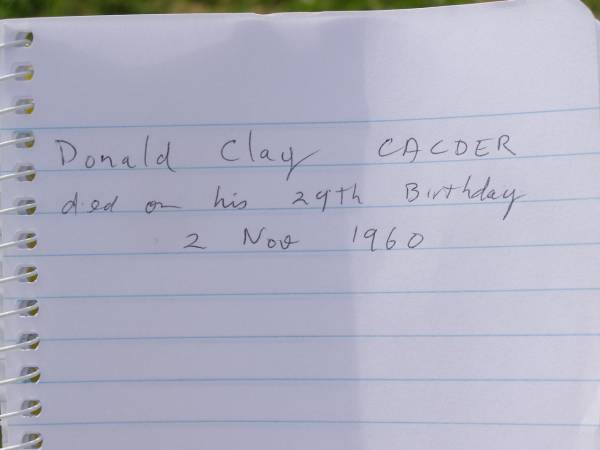 Donald Clay CACDER
died on his 29th Birthday
2 Nov 1960